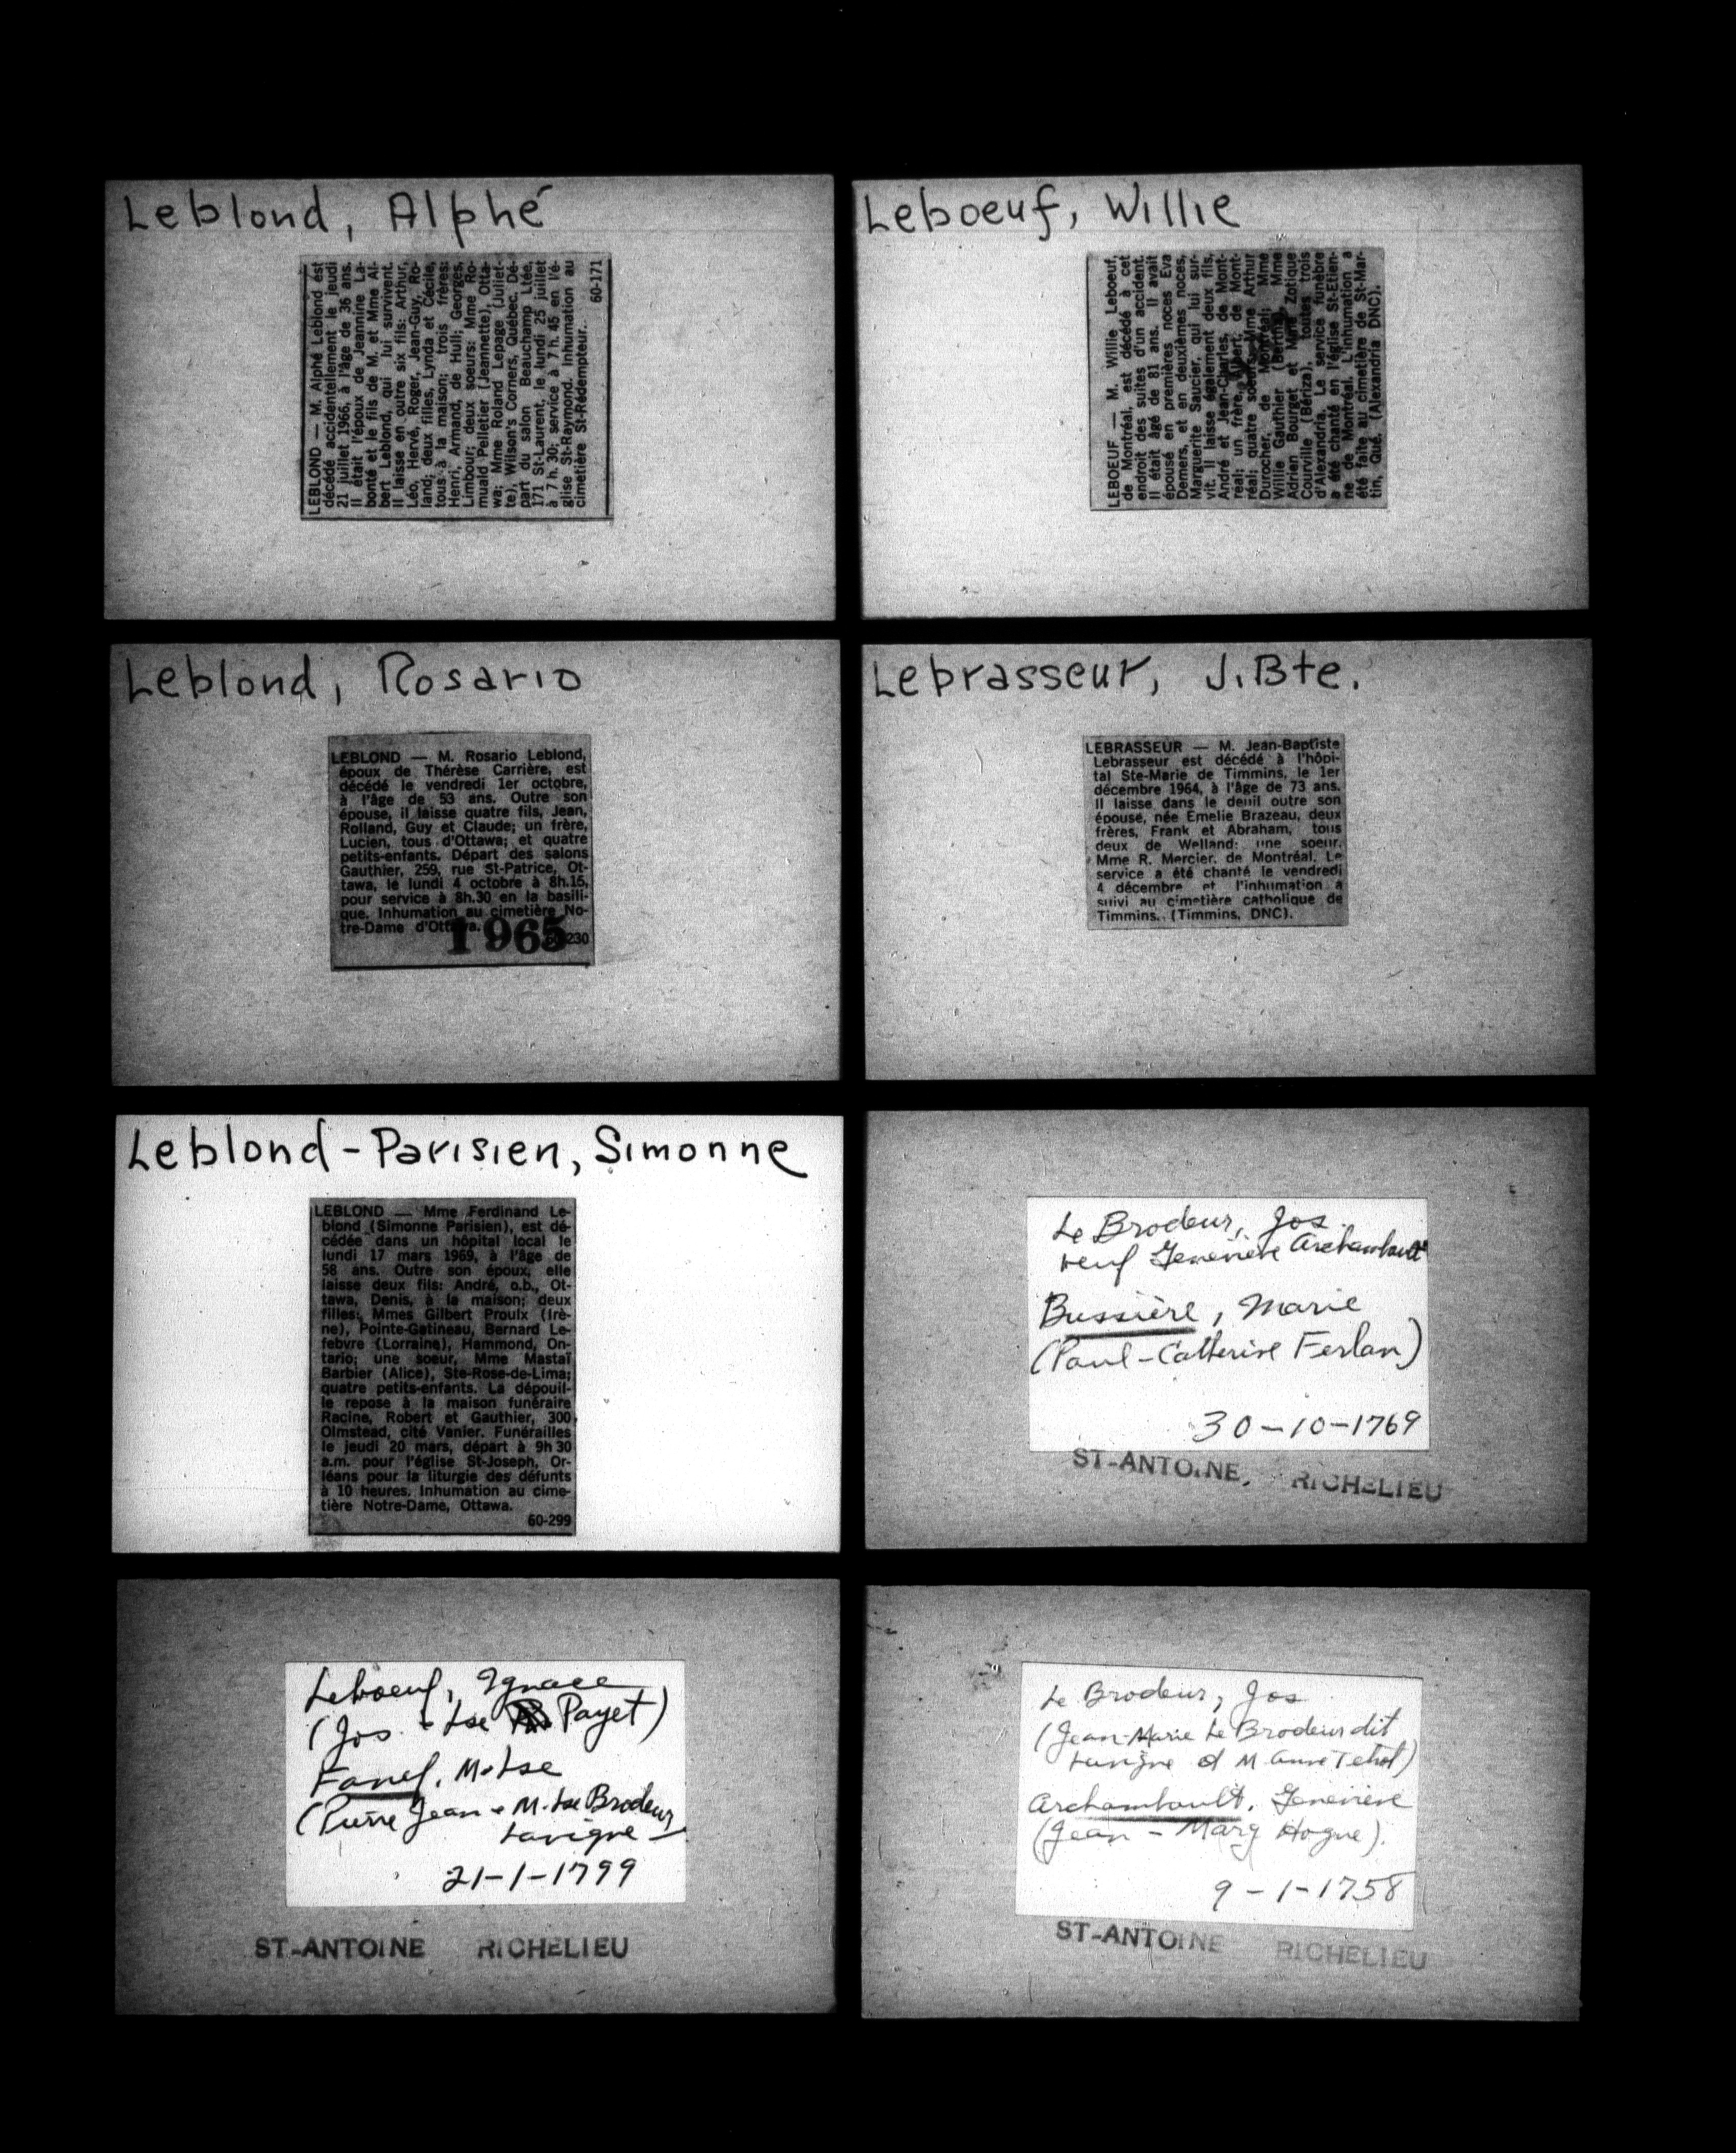 Leblond, Alphé
LEBLOND — M. Alphé Leblond est
décédé accidentellement le jeudi
21 juillet 1966, à l'âge de 36 ans.
Il était l'époux de Jeannine La-
bonté et le fils de M. et Mme Al-
bert Leblond, qui lui survivent.
Il laisse en outre six fils: Arthur,
Léo, Hervé, Roger, Jean-Guy, Ro-
land; deux filles, Lynda et Cécile,
tous à la maison; trois frères:
Henri, Armand, de Hull; Georges,
Limbour; deux soeurs: Mme Ro-
muald Pelletier (Jeannette), Otta-
wa; Mme Roland Lepage (Juliet-
te), Wilson's Corners, Québec. Dé-
part du salon Beauchamp Ltée,
171 St-Laurent, le lundi 25 juillet
à 7 h. 30; service à 7 h. 45 en l'é-
glise St-Raymond. Inhumation au
cimetière St-Rédempteur.
60-171
Leboeuf, Willie
LEBOEUF — M. Willie Leboeuf,
de Montréal, est décédé à cet
endroit des suites d'un accident.
Il était âgé de 81 ans. Il avait
épousé en premières noces Eva
Demers, et en deuxièmes noces,
Marguerite Saucier, qui lui sur-
vit. Il laisse également deux fils,
André et Jean-Charles, de Mont-
réal; un frère, Albert, de Mont-
réal; quatre soeurs, Mme Arthur
Durocher, de Montréal; Mme
Willie Gauthier (Bertha), Mme
Adrien Bourget et Mme Zotique
Courville (Bériza), toutes trois
d'Alexandria. Le service funèbre
a été chanté en l'église St-Etien-
ne de Montréal. L'inhumation a
été faite au cimetière de St-Mar-
tin, Qué. (Alexandria DNC).
Leblond, Rosario
LEBLOND — M. Rosario Leblond,
époux de Thérèse Carrière, est
décédé le vendredi 1er octobre,
à l'âge de 53 ans. Outre son
épouse, il laisse quatre fils, Jean,
Rolland, Guy et Claude; un frère,
Lucien, tous d'Ottawa; et quatre
petits-enfants. Départ des salons
Gauthier, 259, rue St-Patrice, Ot-
tawa, le lundi 4 octobre à 8h.15,
pour service à 8h.30 en la basili-
que. Inhumation au cimetière No-
tre-Dame d'Ottawa.
1965
230
Lebrasseur, J.Bte.
LEBRASSEUR — M. Jean-Baptiste
Lebrasseur est décédé à l'hôpi-
tal Ste-Marie de Timmins, le 1er
décembre 1964, à l'âge de 73 ans.
Il laisse dans le deuil outre son
épouse, née Emelie Brazeau, deux
frères, Frank et Abraham, tous
deux de Welland; une soeur,
Mme R. Mercier, de Montréal. Le
service a été chanté le vendredi
4 décembre et l'inhumation a
suivi au cimetière catholique de
Timmins. (Timmins, DNC).
Leblond-Parisien, Simonne
LEBLOND — Mme Ferdinand Le-
blond (Simonne Parisien), est dé-
cédée dans un hôpital local le
lundi 17 mars 1969, à l'âge de
58 ans. Outre son époux, elle
laisse deux fils: André, o.b., Ot-
tawa, Denis, à la maison; deux
filles: Mmes Gilbert Proulx (Irè-
ne), Pointe-Gatineau, Bernard Le-
febvre (Lorraine), Hammond, On-
tario; une soeur, Mme Mastaï
Barbier (Alice), Ste-Rose-de-Lima;
quatre petits-enfants. La dépouil-
le repose à la maison funéraire
Racine, Robert et Gauthier, 300
Olmstead, cité Vanier. Funérailles
le jeudi 20 mars, départ à 9h30
a.m. pour l'église St-Joseph, Or-
léans pour la liturgie des défunts
à 10 heures. Inhumation au cime-
tière Notre-Dame, Ottawa.
60-299
Le Brodeur, Jos.
veuf Geneviève Archambault
Bussière, Marie
(Paul - Catherine Ferlan)
30-10-1769
ST-ANTOINE, RICHELIEU
Leboeuf, Ignace
(Jos. - Lse Payet)
Fanef, M-Lse
(Pierre Jean - M-Lse Brodeur
Lavigne
21-1-1799
ST-ANTOINE RICHELIEU
Le Brodeur, Jos
(Jean-Marie Le Brodeur dit
Lavigne et M Anne Tetrot)
Archambault, Geneviève
(Jean - Marg Hogue).
9-1-1758
ST-ANTOINE RICHELIEU